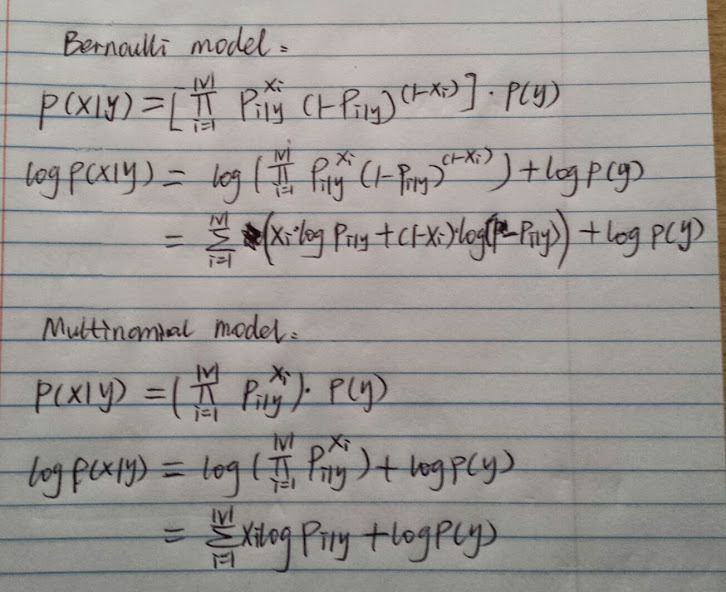 Bernoulli model:
p(x|y) = [∏_{i=1}^{|V|} P_{i|y}^{x_i} (1-P_{i|y})^{(1-x_i)}] · p(y)
log p(x|y) = log(∏_{i=1}^{|V|} P_{i|y}^{x_i} (1-P_{i|y})^{(1-x_i)}) + log p(y)
= ∑_{i=1}^{|V|} (x_i·log P_{i|y} + (1-x_i)·log(1-P_{i|y})) + log p(y)
Multinomial model:
p(x|y) = (∏_{i=1}^{|V|} P_{i|y}^{x_i}) · p(y)
log p(x|y) = log(∏_{i=1}^{|V|} P_{i|y}^{x_i}) + log p(y)
= ∑_{i=1}^{|V|} x_i log P_{i|y} + log p(y)